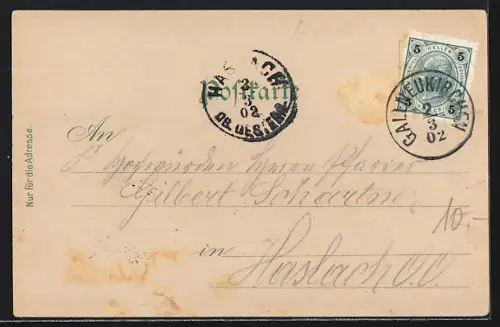 Postkarte
HASLACH
2
3
02
OB. OESTERR.
5 5
HELLER
5 5
GALLNEUKIRCHEN
2
3
02
Nur für die Adresse.
An
Hochwürden Herrn Pfarrer
Gilbert Schartner
10.-
in
Haslach O.Ö.